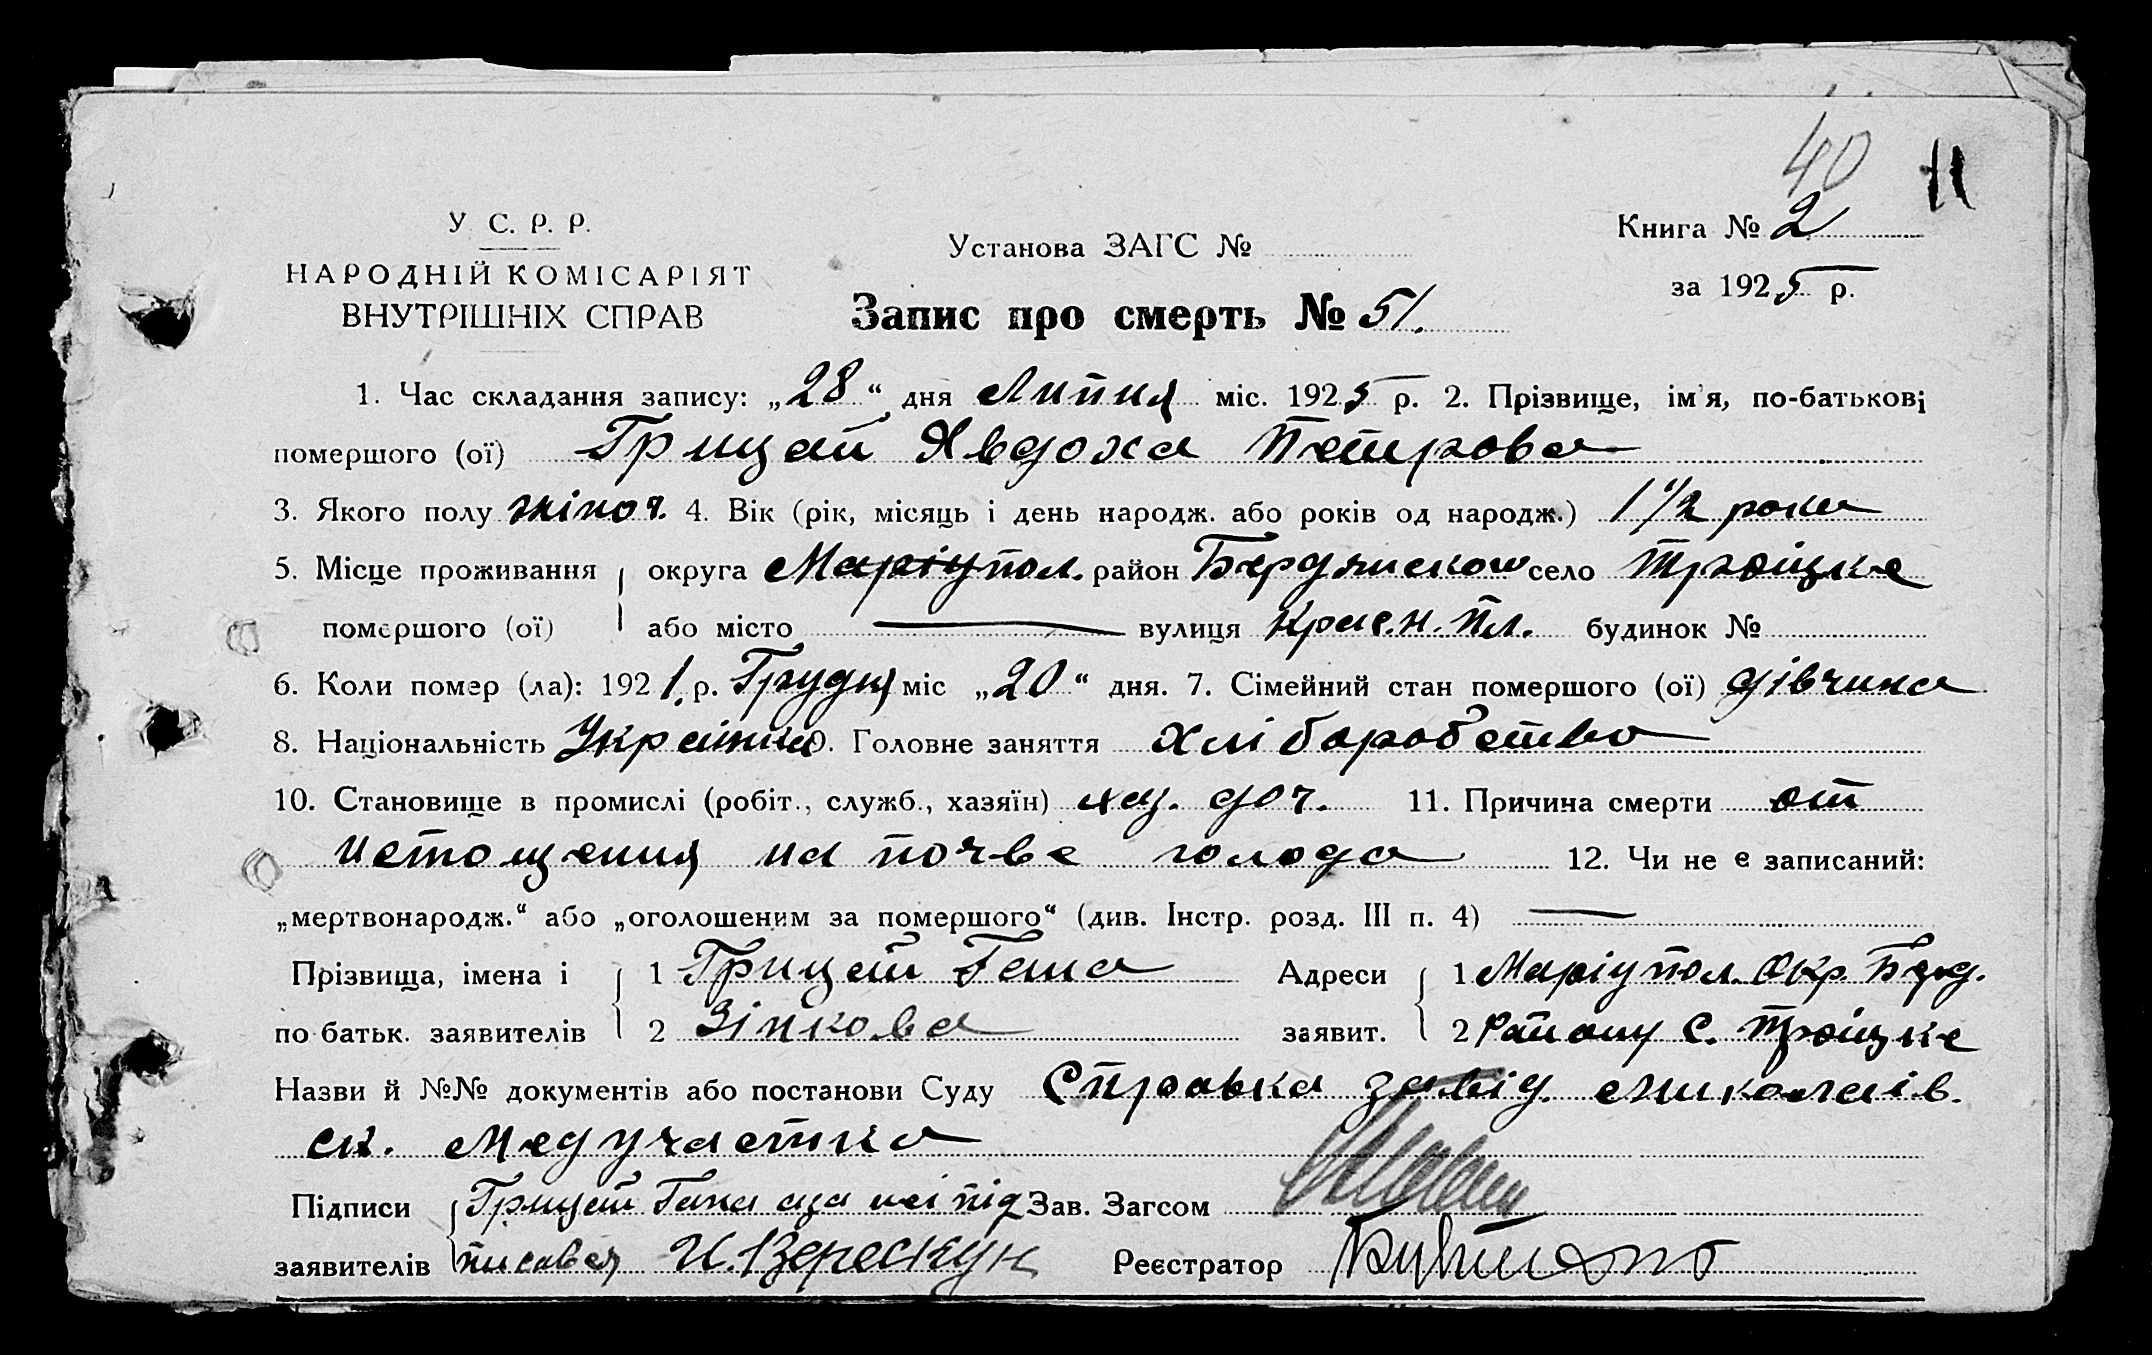 40 11
У. С. Р. Р.
НАРОДНІЙ КОМІСАРІЯТ
ВНУТРІШНІХ СПРАВ
Установа ЗАГС №
Книга № 2
за 1925 р.
Запис про смерть № 51.
1. Час складання запису: „28“ дня Липня міс. 1925 р. 2. Прізвище, ім'я, по-батькові
помершого (ої) Грицай Явдоха Петрова
3. Якого полу жіноч. 4. Вік (рік, місяць і день народж. або років од народж.) 1 1/2 роки
5. Місце проживання округа Маріупол. район Бердянського село Троїцке
помершого (ої) або місто — вулиця Красн. Пл. будинок №
6. Коли помер (ла): 1921 р. Грудня міс „20“ дня. 7. Сімейний стан помершого (ої) дівчина
8. Національність Українка 9. Головне заняття хліборобство
10. Становище в промислі (робіт., служб., хазяїн) хаз. доч. 11. Причина смерти от
истощения на почве голода 12. Чи не є записаний:
„мертвонародж.“ або „оголошеним за помершого“ (див. Інстр. розд. III п. 4) —
Прізвища, імена і 1 Грицай Гана Адреси 1 Маріупол. Окр. Берд.
по батьк. заявителів 2 Зінкова заявит. 2 Району С. Троїцке
Назви й №№ документів або постанови Суду Справка завід. Миколаів.
ск. Медучастка
Підписи Грицай Гана а за неї під Зав. Загсом
заявителів писався И. Верескун Реєстратор